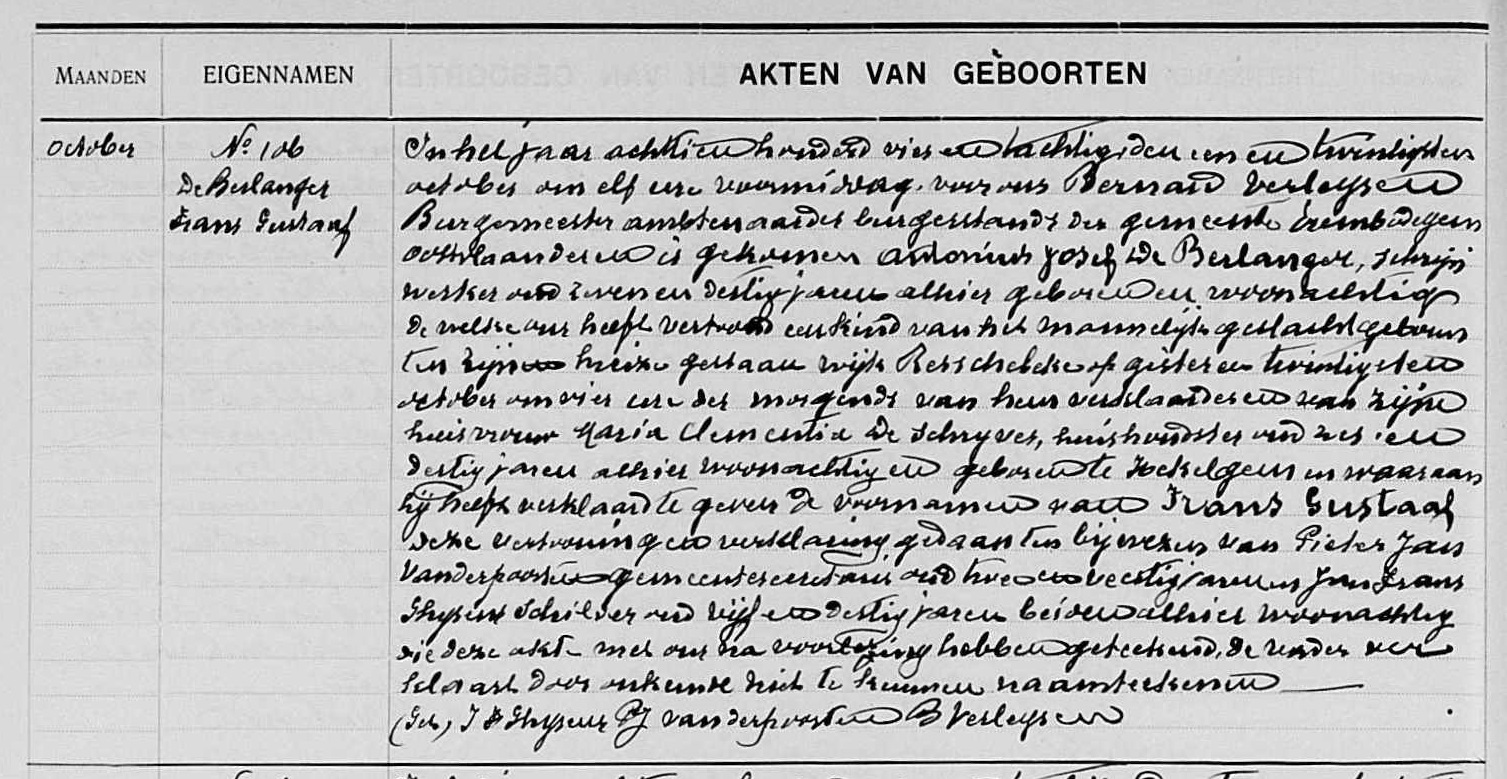 MAANDEN EIGENNAMEN AKTEN VAN GEBOORTEN
October
No 106
De Berlanger
Frans Gustaaf
In het jaar achttien honderd vier en tachtig, den een en twintigsten
october om elf ure voormiddag, voor ons Bernard Verleysen
Burgemeester ambtenaar des burgerstands der gemeente Erembodegem
Oostvlaanderen is gekomen Antonius Josef De Berlanger, schrijn
werker oud zeven en dertig jaren alhier geboren en woonachtig
de welke ons heeft vertoond een kind van het mannelijk geslacht geboren
ten zijnen huize gestaan wijk Resschebeke op gisteren twintigsten
october om vier ure des morgends van hem verklaarder en van zijne
huisvrouw Maria Clementia De Schryver, huishoudster oud zes en
dertig jaren alhier woonachtig en geboren te Hekelgem en waaraan
hij heeft verklaard te geven de voornamen van Frans Gustaaf
deze vertooning en verklaring gedaan ten bijwezen van Pieter Jan
Vanderpoorten gemeentesecretaris oud twee en veertig jaren en Jan Frans
Ghysens Schilder oud vijf en dertig jaren beiden alhier woonachtig
die deze akte met ons na voorlezing hebben geteekend, de vader ver
klaart door onkunde niet te kunnen naamteekenen
(Get) J F Ghysens PJ vanderpoorten B Verleysen